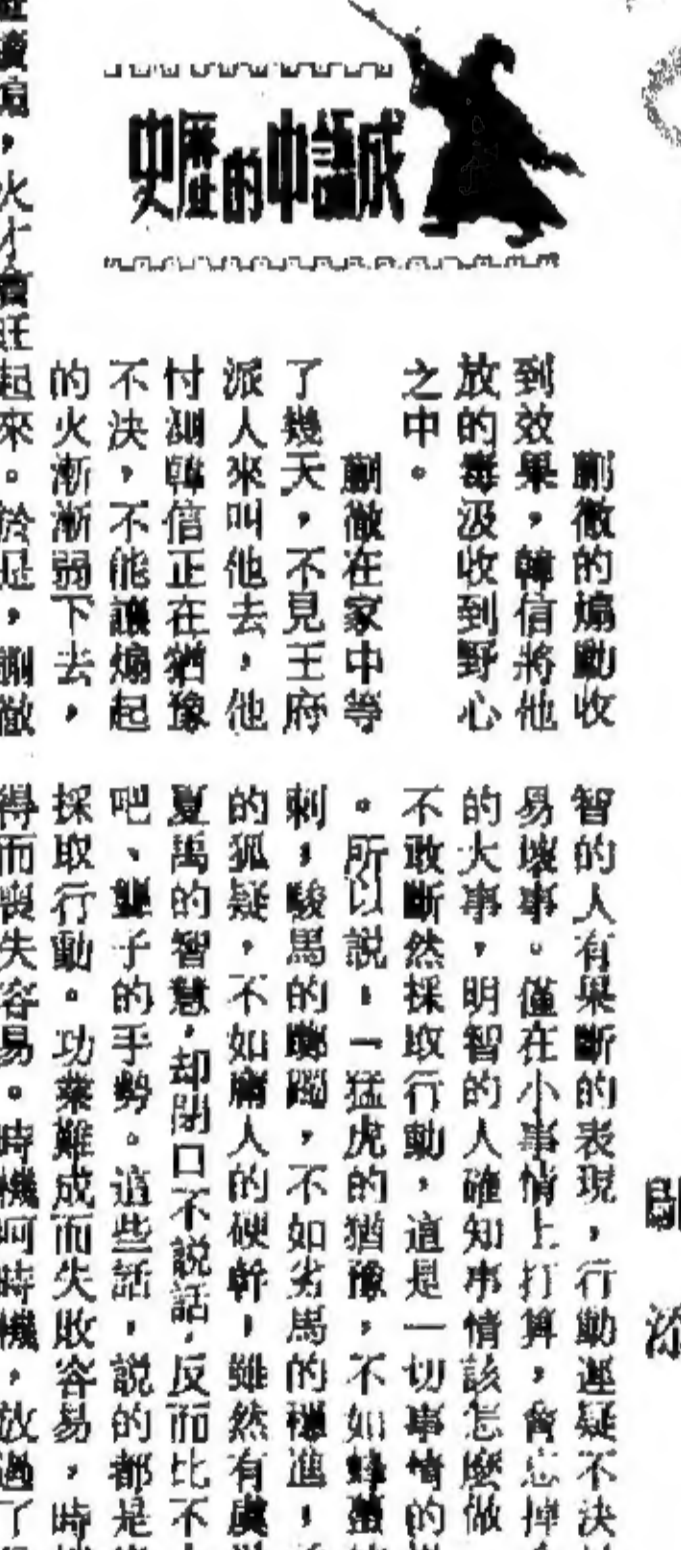 成語中的歷史
蒯徹的煽動收
到效果，韓信將他
放的毒汲收到野心
之中。
蒯徹在家中等
了幾天，不見王府
派人來叫他去，他
忖測韓信正在猶豫
不決，不能讓煽起
的火漸漸弱下去，
火才會旺起來。於是，蒯徹
智的人有果斷的表現，行動遲疑不決
易壞事。僅在小事情上打算，會忘掉
的大事，明智的人確知事情該怎麼做
不敢斷然採取行動，這是一切事情的
。所以說：一猛虎的猶豫，不如蜂蠆
刺，駿馬的躑躅，不如劣馬的穩進，
的狐疑，不如庸人的硬幹，雖然有虞
夏禹的智慧，却閉口不說話，反而比不
吧、聾子的手勢。這些話，說的都是
採取行動。功業難成而失敗容易，時
得而喪失容易。時機呵時機，放過了